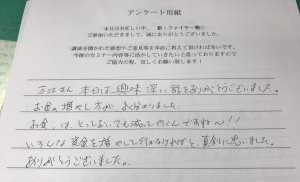 アンケート用紙
本日はお忙しい中、新・ファイヤー塾に
ご参加いただきまして、誠にありがとうございました。
講演を聞かれた感想やご意見等を率直に教えて頂ければ幸いです。
今後のセミナー内容等に活かしていきたいと思っておりますので
ご協力の程、宜しくお願い致します！
本日は興味深い話をありがとうございました。
お金の増やし方が、よく分かりました。
お金は、とっておいても減って行くんですね〜!!
いろんな資金を増やして行かなければと、真剣に思いました。
ありがとうございました。